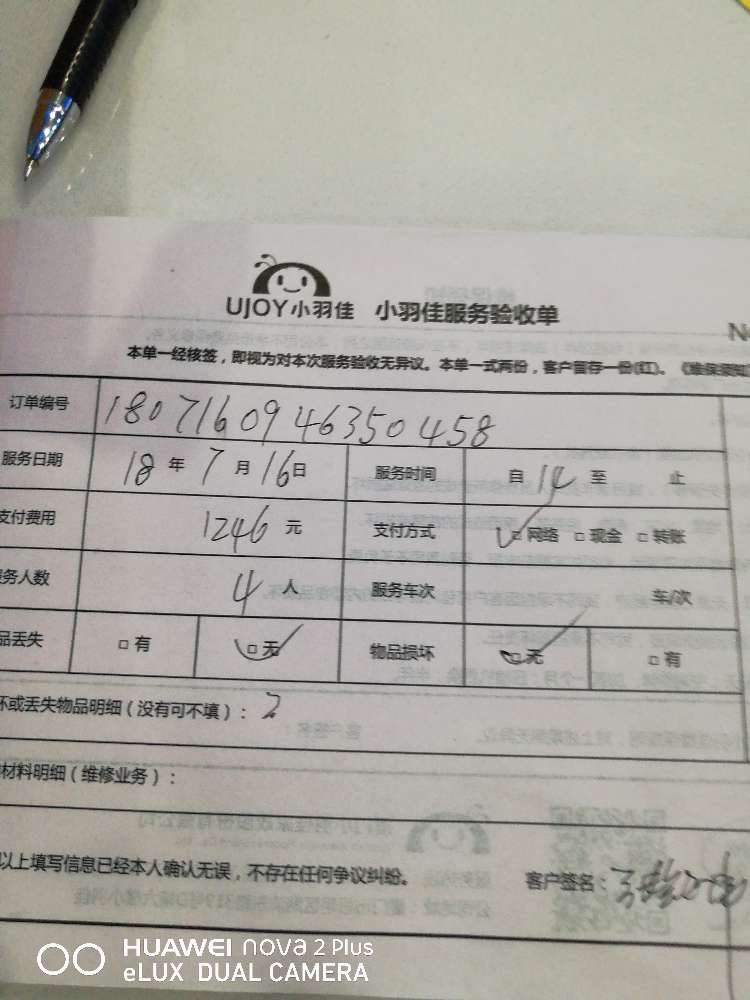 UJOY小羽佳 小羽佳服务验收单
N
本单一经核签，即视为对本次服务验收无异议。本单一式两份，客户留存一份(红)。《维保须知
订单编号 1807160946350458
服务日期 18 年 7 月 16 日 服务时间 自 14 至 止
支付费用 1246 元 支付方式 ☑网络 □现金 □转账
务人数 4 人 服务车次 车/次
品丢失 □有 ☑无 物品损坏 ☑无 □有
坏或丢失物品明细（没有可不填）：
材料明细（维修业务）：
以上填写信息已经本人确认无误，不存在任何争议纠纷。 客户签名：
HUAWEI nova 2 Plus
eLUX DUAL CAMERA